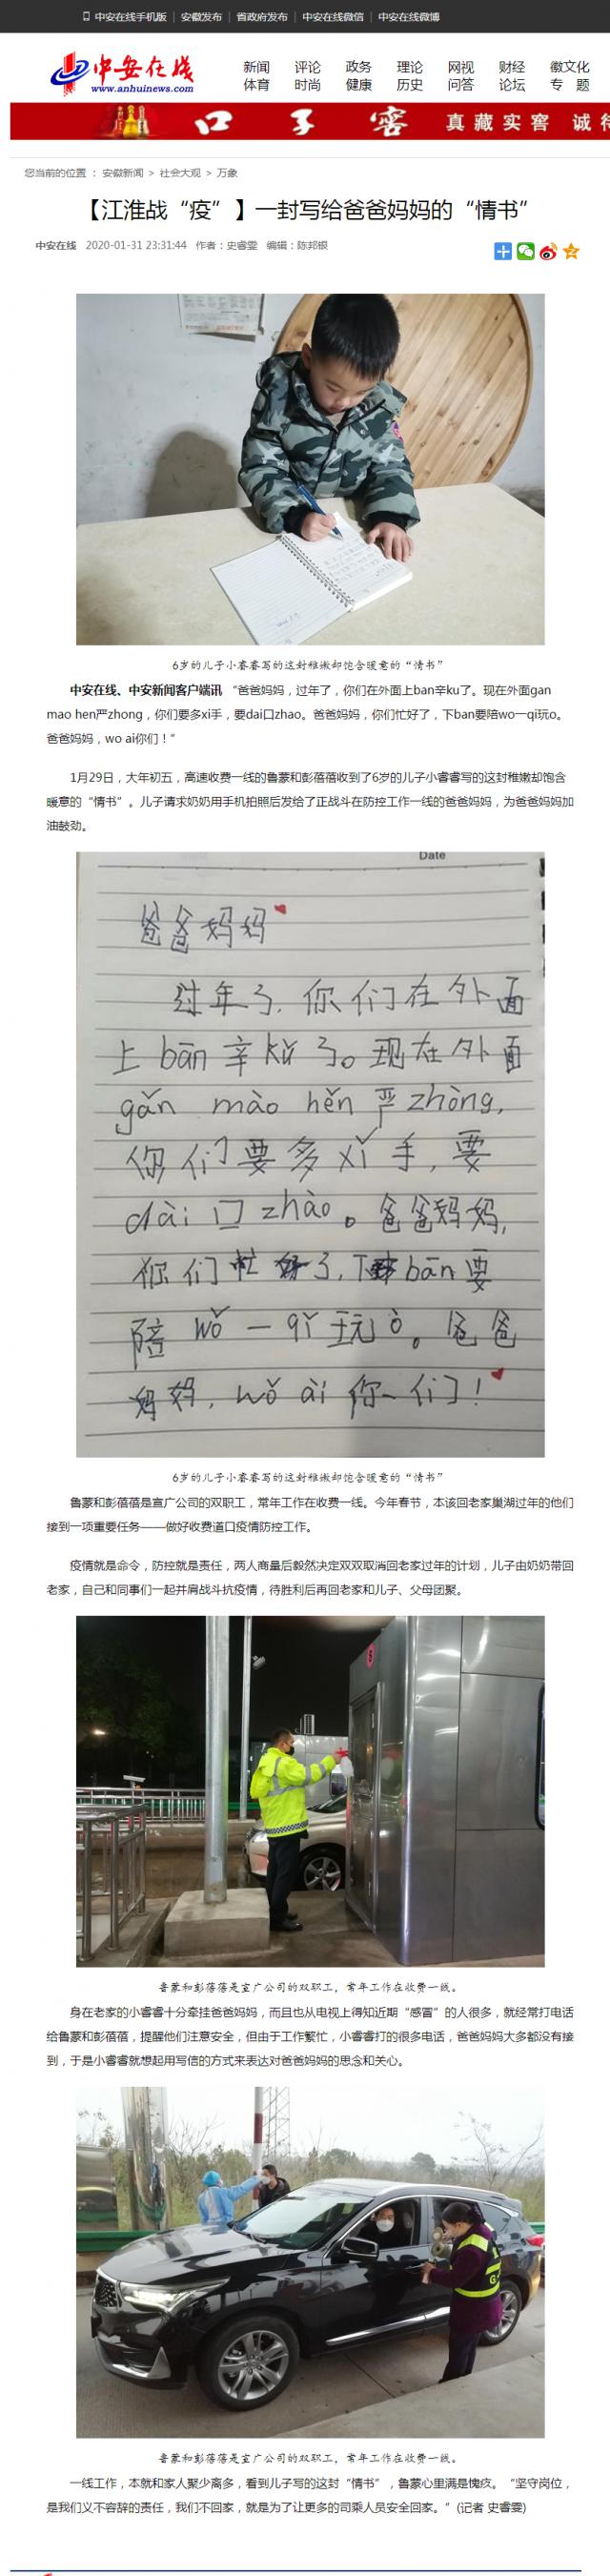 中安在线手机版 | 安徽发布 | 省政府发布 | 中安在线微信 | 中安在线微博
中安在线
www.anhuinews.com
新闻 评论 政务 理论 网视 财经 徽文化
体育 时尚 健康 历史 问答 论坛 专 题
口 子 窖 真 藏 实 窖 诚 待
您当前的位置 : 安徽新闻 > 社会大观 > 万象
【江淮战“疫”】一封写给爸爸妈妈的“情书”
中安在线 2020-01-31 23:31:44 作者：史睿雯 编辑：陈邦银
6岁的儿子小睿睿写的这封稚嫩却饱含暖意的“情书”
中安在线、中安新闻客户端讯 “爸爸妈妈，过年了，你们在外面上ban辛ku了。现在外面gan
mao hen严zhong，你们要多xi手，要dai口zhao。爸爸妈妈，你们忙好了，下ban要陪wo一qi玩o。
爸爸妈妈，wo ai你们！”
1月29日，大年初五，高速收费一线的鲁蒙和彭蓓蓓收到了6岁的儿子小睿睿写的这封稚嫩却饱含
暖意的“情书”。儿子请求奶奶用手机拍照后发给了正战斗在防控工作一线的爸爸妈妈，为爸爸妈妈加
油鼓劲。
Date
爸爸妈妈
过年了，你们在外面
上bān辛kǔ了。现在外面
gǎn mào hěn 严zhòng,
你们要多xǐ手，要
dài口zhào。爸爸妈妈，
你们忙好了，下bān要
陪wǒ一qǐ玩ò。爸爸
妈妈，wǒ ài 你们！
6岁的儿子小睿睿写的这封稚嫩却饱含暖意的“情书”
鲁蒙和彭蓓蓓是宣广公司的双职工，常年工作在收费一线。今年春节，本该回老家巢湖过年的他们
接到一项重要任务——做好收费道口疫情防控工作。
疫情就是命令，防控就是责任，两人商量后毅然决定双双取消回老家过年的计划，儿子由奶奶带回
老家，自己和同事们一起并肩战斗抗疫情，待胜利后再回老家和儿子、父母团聚。
鲁蒙和彭蓓蓓是宣广公司的双职工，常年工作在收费一线。
身在老家的小睿睿十分牵挂爸爸妈妈，而且也从电视上得知近期“感冒”的人很多，就经常打电话
给鲁蒙和彭蓓蓓，提醒他们注意安全，但由于工作繁忙，小睿睿打的很多电话，爸爸妈妈大多都没有接
到，于是小睿睿就想起用写信的方式来表达对爸爸妈妈的思念和关心。
鲁蒙和彭蓓蓓是宣广公司的双职工，常年工作在收费一线。
一线工作，本就和家人聚少离多，看到儿子写的这封“情书”，鲁蒙心里满是愧疚。“坚守岗位，
是我们义不容辞的责任，我们不回家，就是为了让更多的司乘人员安全回家。”(记者 史睿雯)